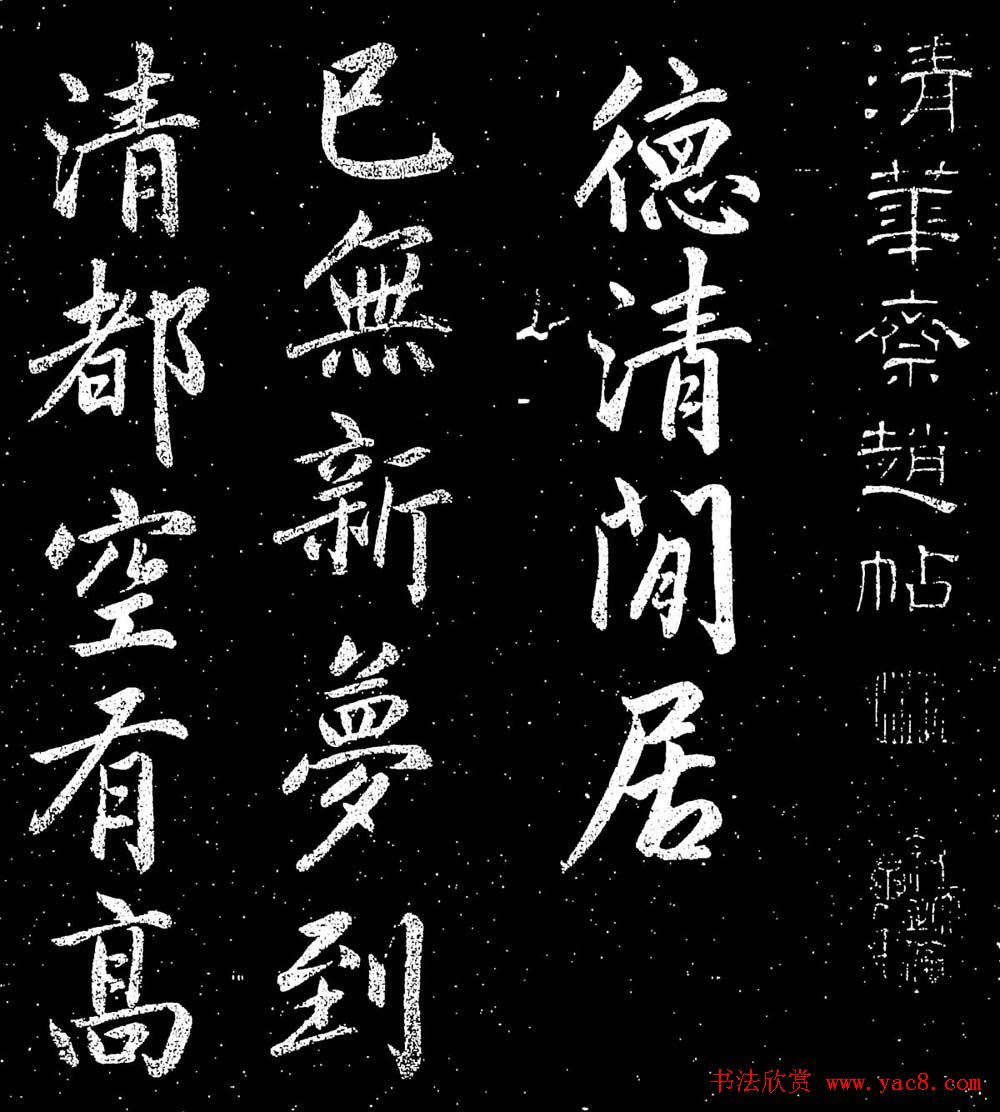 清華齋趙帖
德清閒居
已無新夢到
清都空看高
书法欣赏 www.yac8.com